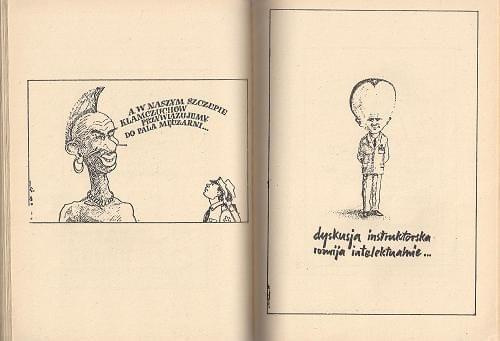 A W NASZYM SZCZEPIE
KŁAMCZUCHÓW
PRZYWIĄZUJEMY
DO PALA MĘCZARNI...
dyskusja instruktorska
rozwija intelektualnie...